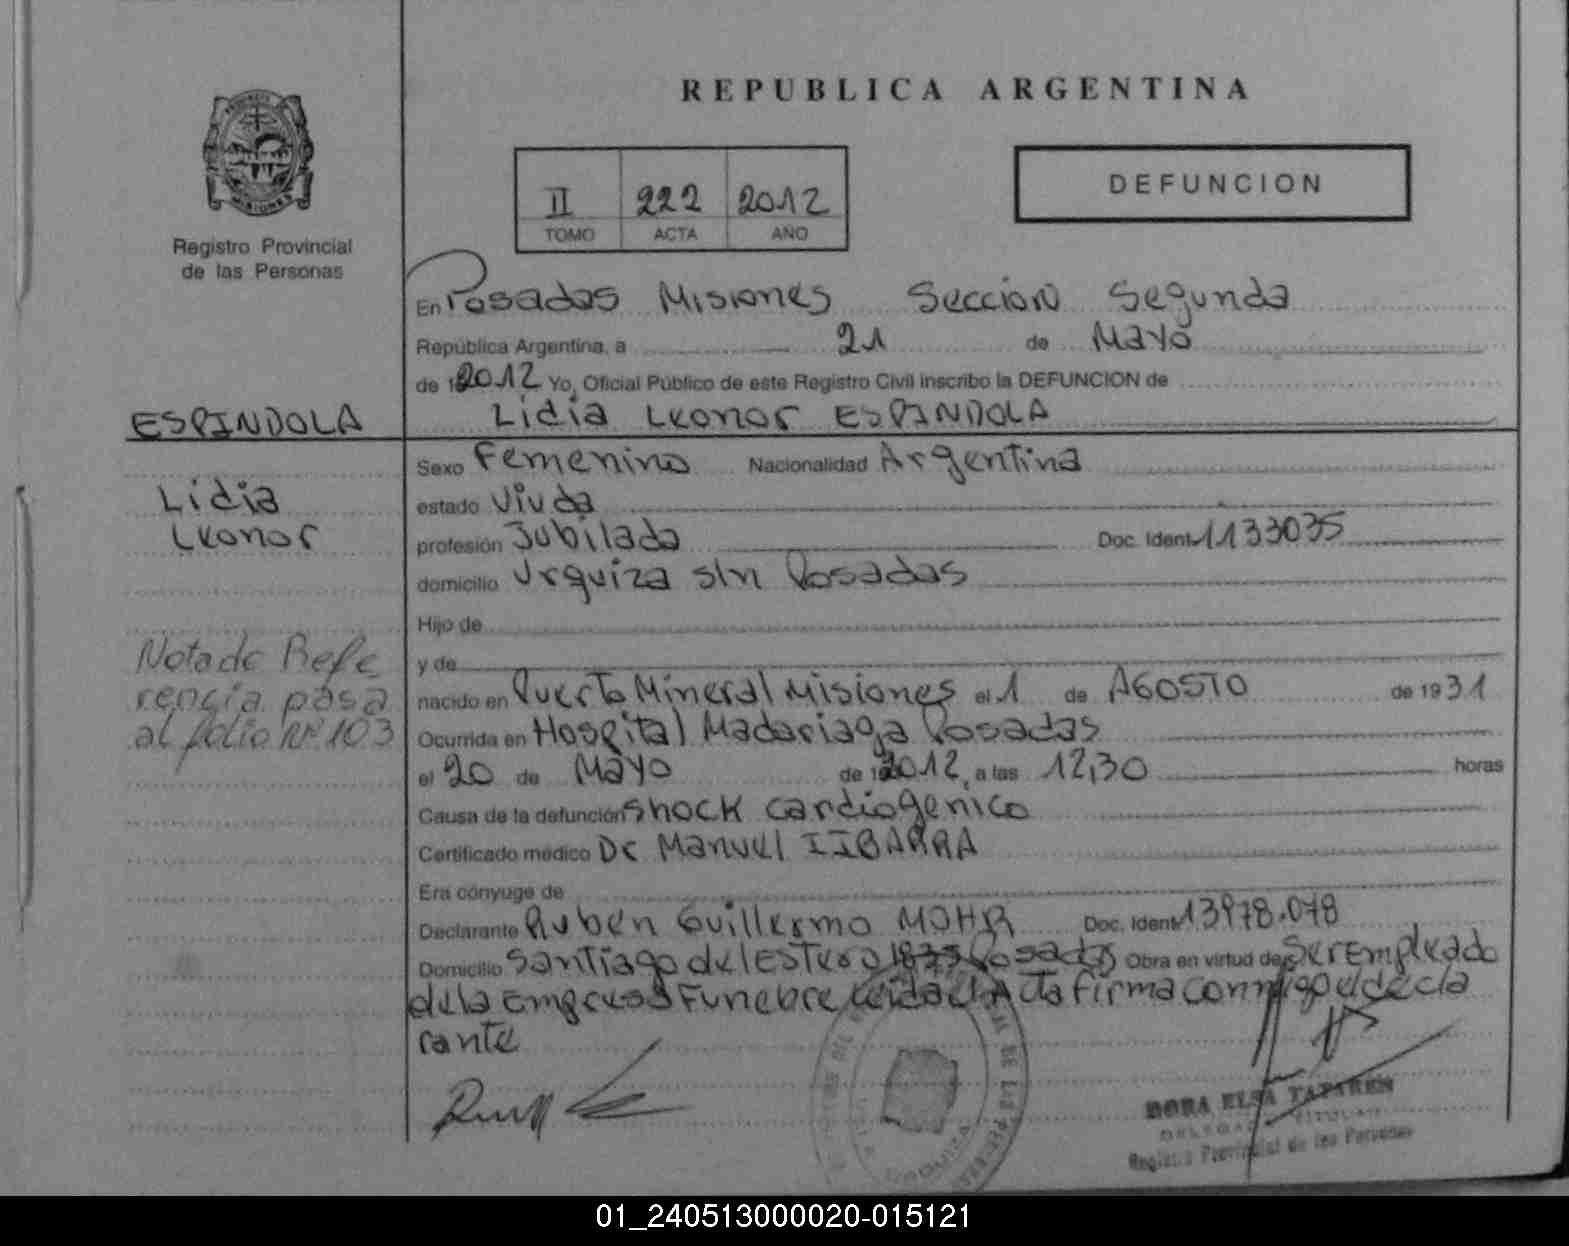 REPUBLICA ARGENTINA
MISIONES
Registro Provincial
de las Personas
II 222 2012
TOMO ACTA AÑO
DEFUNCION
En Posadas Misiones Seccion Segunda
República Argentina, a 21 de Mayo
de 2012 Yo, Oficial Público de este Registro Civil inscribo la DEFUNCION de
ESPINDOLA
Lidia Leonor ESPINDOLA
Sexo Femenino Nacionalidad Argentina
Lidia
estado Viuda
Leonor
profesión Jubilada Doc. Ident. 1133035
domicilio Urquiza s/n Posadas
Hijo de
Nota de Refe
y de
rencia pasa
nacido en Puerto Mineral Misiones el 1 de AGOSTO de 1931
al folio Nº 103
Ocurrida en Hospital Madariaga Posadas
el 20 de Mayo de 2012, a las 12,30 horas
Causa de la defunción Shock cardiogenico
Certificado médico Dr Manuel IIBARRA
Era cónyuge de
Declarante Ruben Guillermo MOHR Doc. Ident. 13978.078
Domicilio Santiago del Estero Posadas Obra en virtud de Ser Empleado
de la Empresa Funebre Leida el Acta firma conmigo el decla
rante
DORA ELSA TAPAREN
DELEGADA TITULAR
Registro Provincial de las Personas
01_240513000020-015121